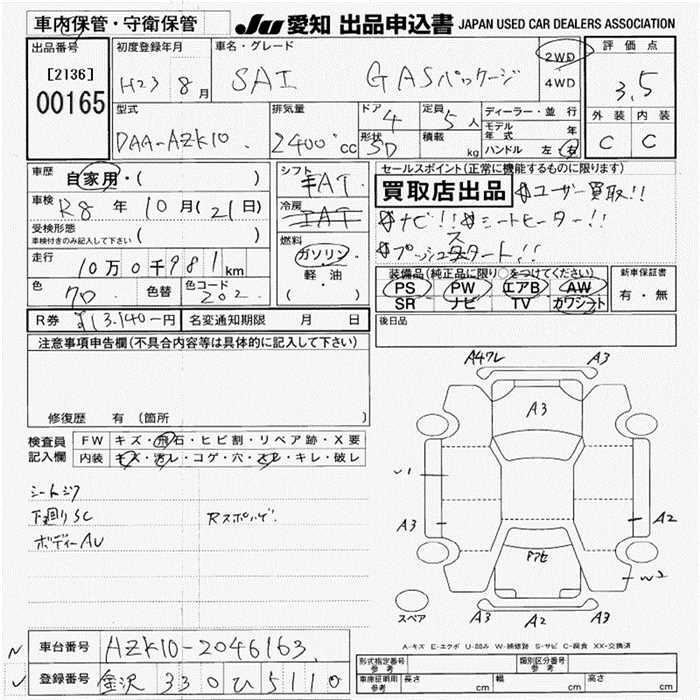 車内保管・守衛保管
JU 愛知 出品申込書 JAPAN USED CAR DEALERS ASSOCIATION
出品番号 初度登録年月 車名・グレード 2WD 評価点
[2136] H23 8月 SAI GASパッケージ 4WD 3.5
00165 外装 内装
型式 排気量 ドア 4 定員 5人 ディーラー・並行
C C
DAA-AZK10 2400cc 形状 5D 積載 kg モデル年式 年
ハンドル 左・右
車歴 自家用・( ) シフト セールスポイント(正常に機能するものに限ります)
AT 買取店出品 ユーザー買取!!
車検 R8年10月(21日) 冷房
AT ナビ!! シートヒーター!!
受検形態 車検付きのみ記入して下さい ( ) 燃料
プッシュスタート!!
走行 10万0千981km ガソリン
軽・油
( )
装備品(純正品に限り○をつけてください) 新車保証書
色 クロ 色替 色コード 202 PS PW エアB AW 有・無
SR ナビ TV カワシート
R券 ¥13,140-円 名変通知期限 月 日 後日品
注意事項申告欄(不具合内容等は具体的に記入して下さい)
修復歴 有 (箇所 )
検査員記入欄 FW キズ・飛石・ヒビ割・リペア跡・X要
内装 キズ・汚レ・コゲ・穴・スレ・キレ・破レ
シートシワ
下廻りSC Rスポイラ
ボディーAU
A4ワレ A3
A3
A3 A2
W2
A3 A2 A3
スペア
A-キズ E-エクボ U-凹み W-補修跡 S-サビ C-腐食 XX-交換済
車台番号 AZK10-2046163
登録番号 金沢 330 ひ 5110
形式指定番号 参考 類別区分番号 参考
車庫証明用 参考 長さ cm 幅 cm 高さ cm